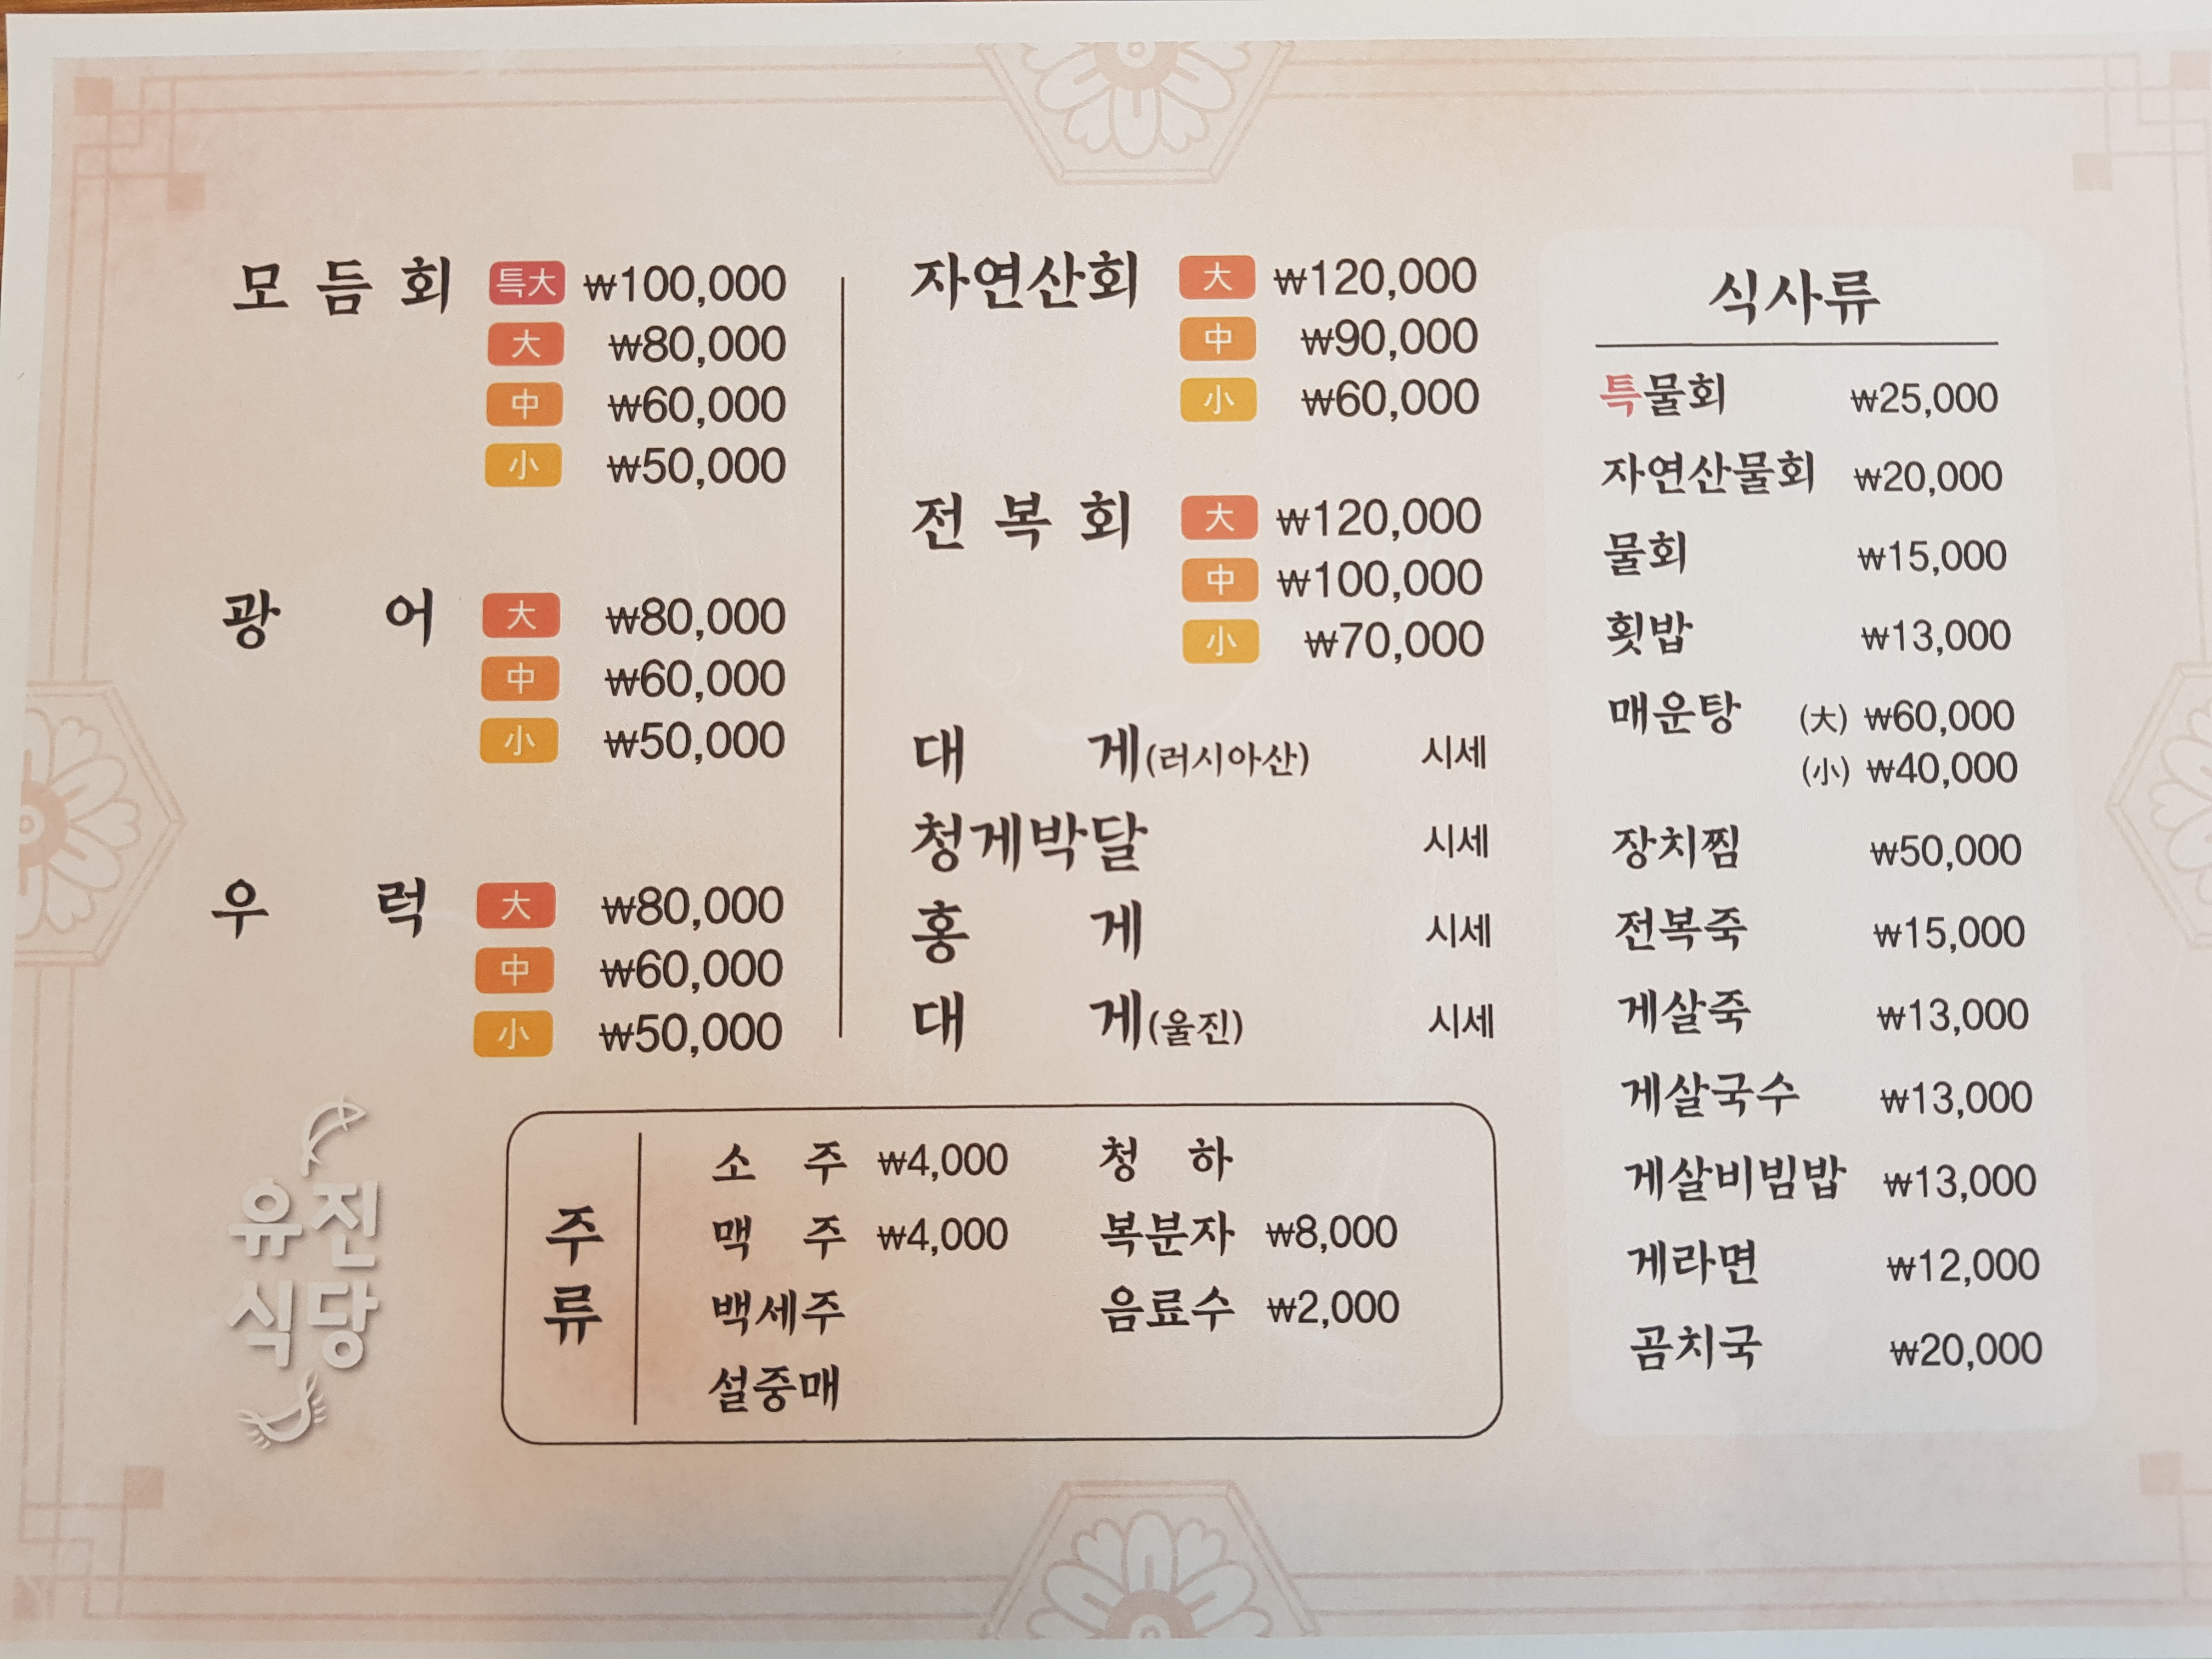 모듬회 特大 ₩100,000
大 ₩80,000
中 ₩60,000
小 ₩50,000
광어 大 ₩80,000
中 ₩60,000
小 ₩50,000
우럭 大 ₩80,000
中 ₩60,000
小 ₩50,000
자연산회 大 ₩120,000
中 ₩90,000
小 ₩60,000
전복회 大 ₩120,000
中 ₩100,000
小 ₩70,000
대게(러시아산) 시세
청게박달 시세
홍게 시세
대게(울진) 시세
식사류
특물회 ₩25,000
자연산물회 ₩20,000
물회 ₩15,000
횟밥 ₩13,000
매운탕 (大) ₩60,000
(小) ₩40,000
장치찜 ₩50,000
전복죽 ₩15,000
게살죽 ₩13,000
게살국수 ₩13,000
게살비빔밥 ₩13,000
게라면 ₩12,000
곰치국 ₩20,000
유진
식당
주류
소주 ₩4,000 청하
맥주 ₩4,000 복분자 ₩8,000
백세주 음료수 ₩2,000
설중매